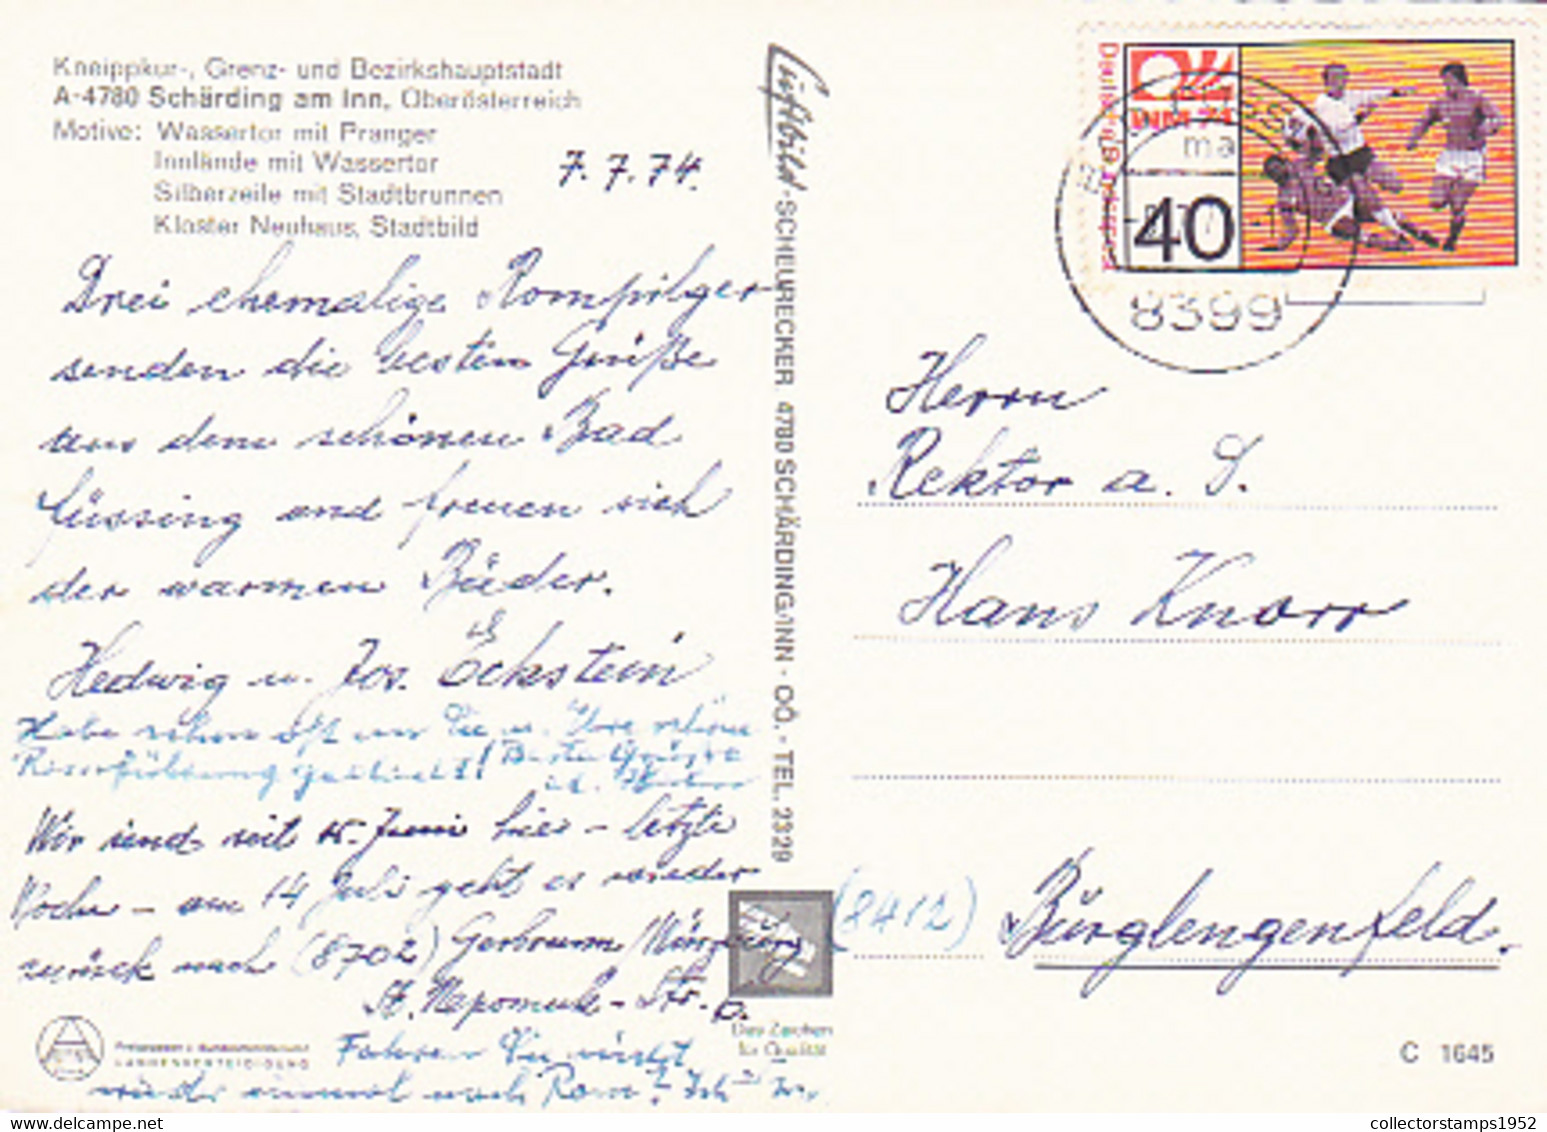 Kneippkur-, Grenz- und Bezirkshauptstadt
A-4780 Schärding am Inn, Oberösterreich
Motive: Wassertor mit Pranger
Innlände mit Wassertor
Silberzeile mit Stadtbrunnen
Kloster Neuhaus, Stadtbild
7. 7. 74.
Drei ehemalige Rompilger
senden die besten Grüße
aus dem schönen Bad
Füssing und freuen sich
der warmen Bäder.
Hedwig u. Jos. Eckstein
Habe schon oft an Sie u. Ihre schöne
Romführung gedacht! Beste Grüße
Wir sind seit 15. Juni hier – letzte
Woche – am 14 Juli geht es wieder
zurück nach (8702) Gerbrunn/Würzburg
St. Nepomuk-Str.
Fahren Sie nicht
wieder einmal nach Rom? Ich
LANDESVERTEIDIGUNG
Luftbild-SCHEURECKER. 4780 SCHÄRDING/INN - OÖ. - TEL. 2329
Das Zeichen
für Qualität
Deutsche Bundespost
WM 74
40
8399
Herrn
Rektor a. D.
Hans Knorr
(8412) Burglengenfeld.
C 1645
collectorstamps1952